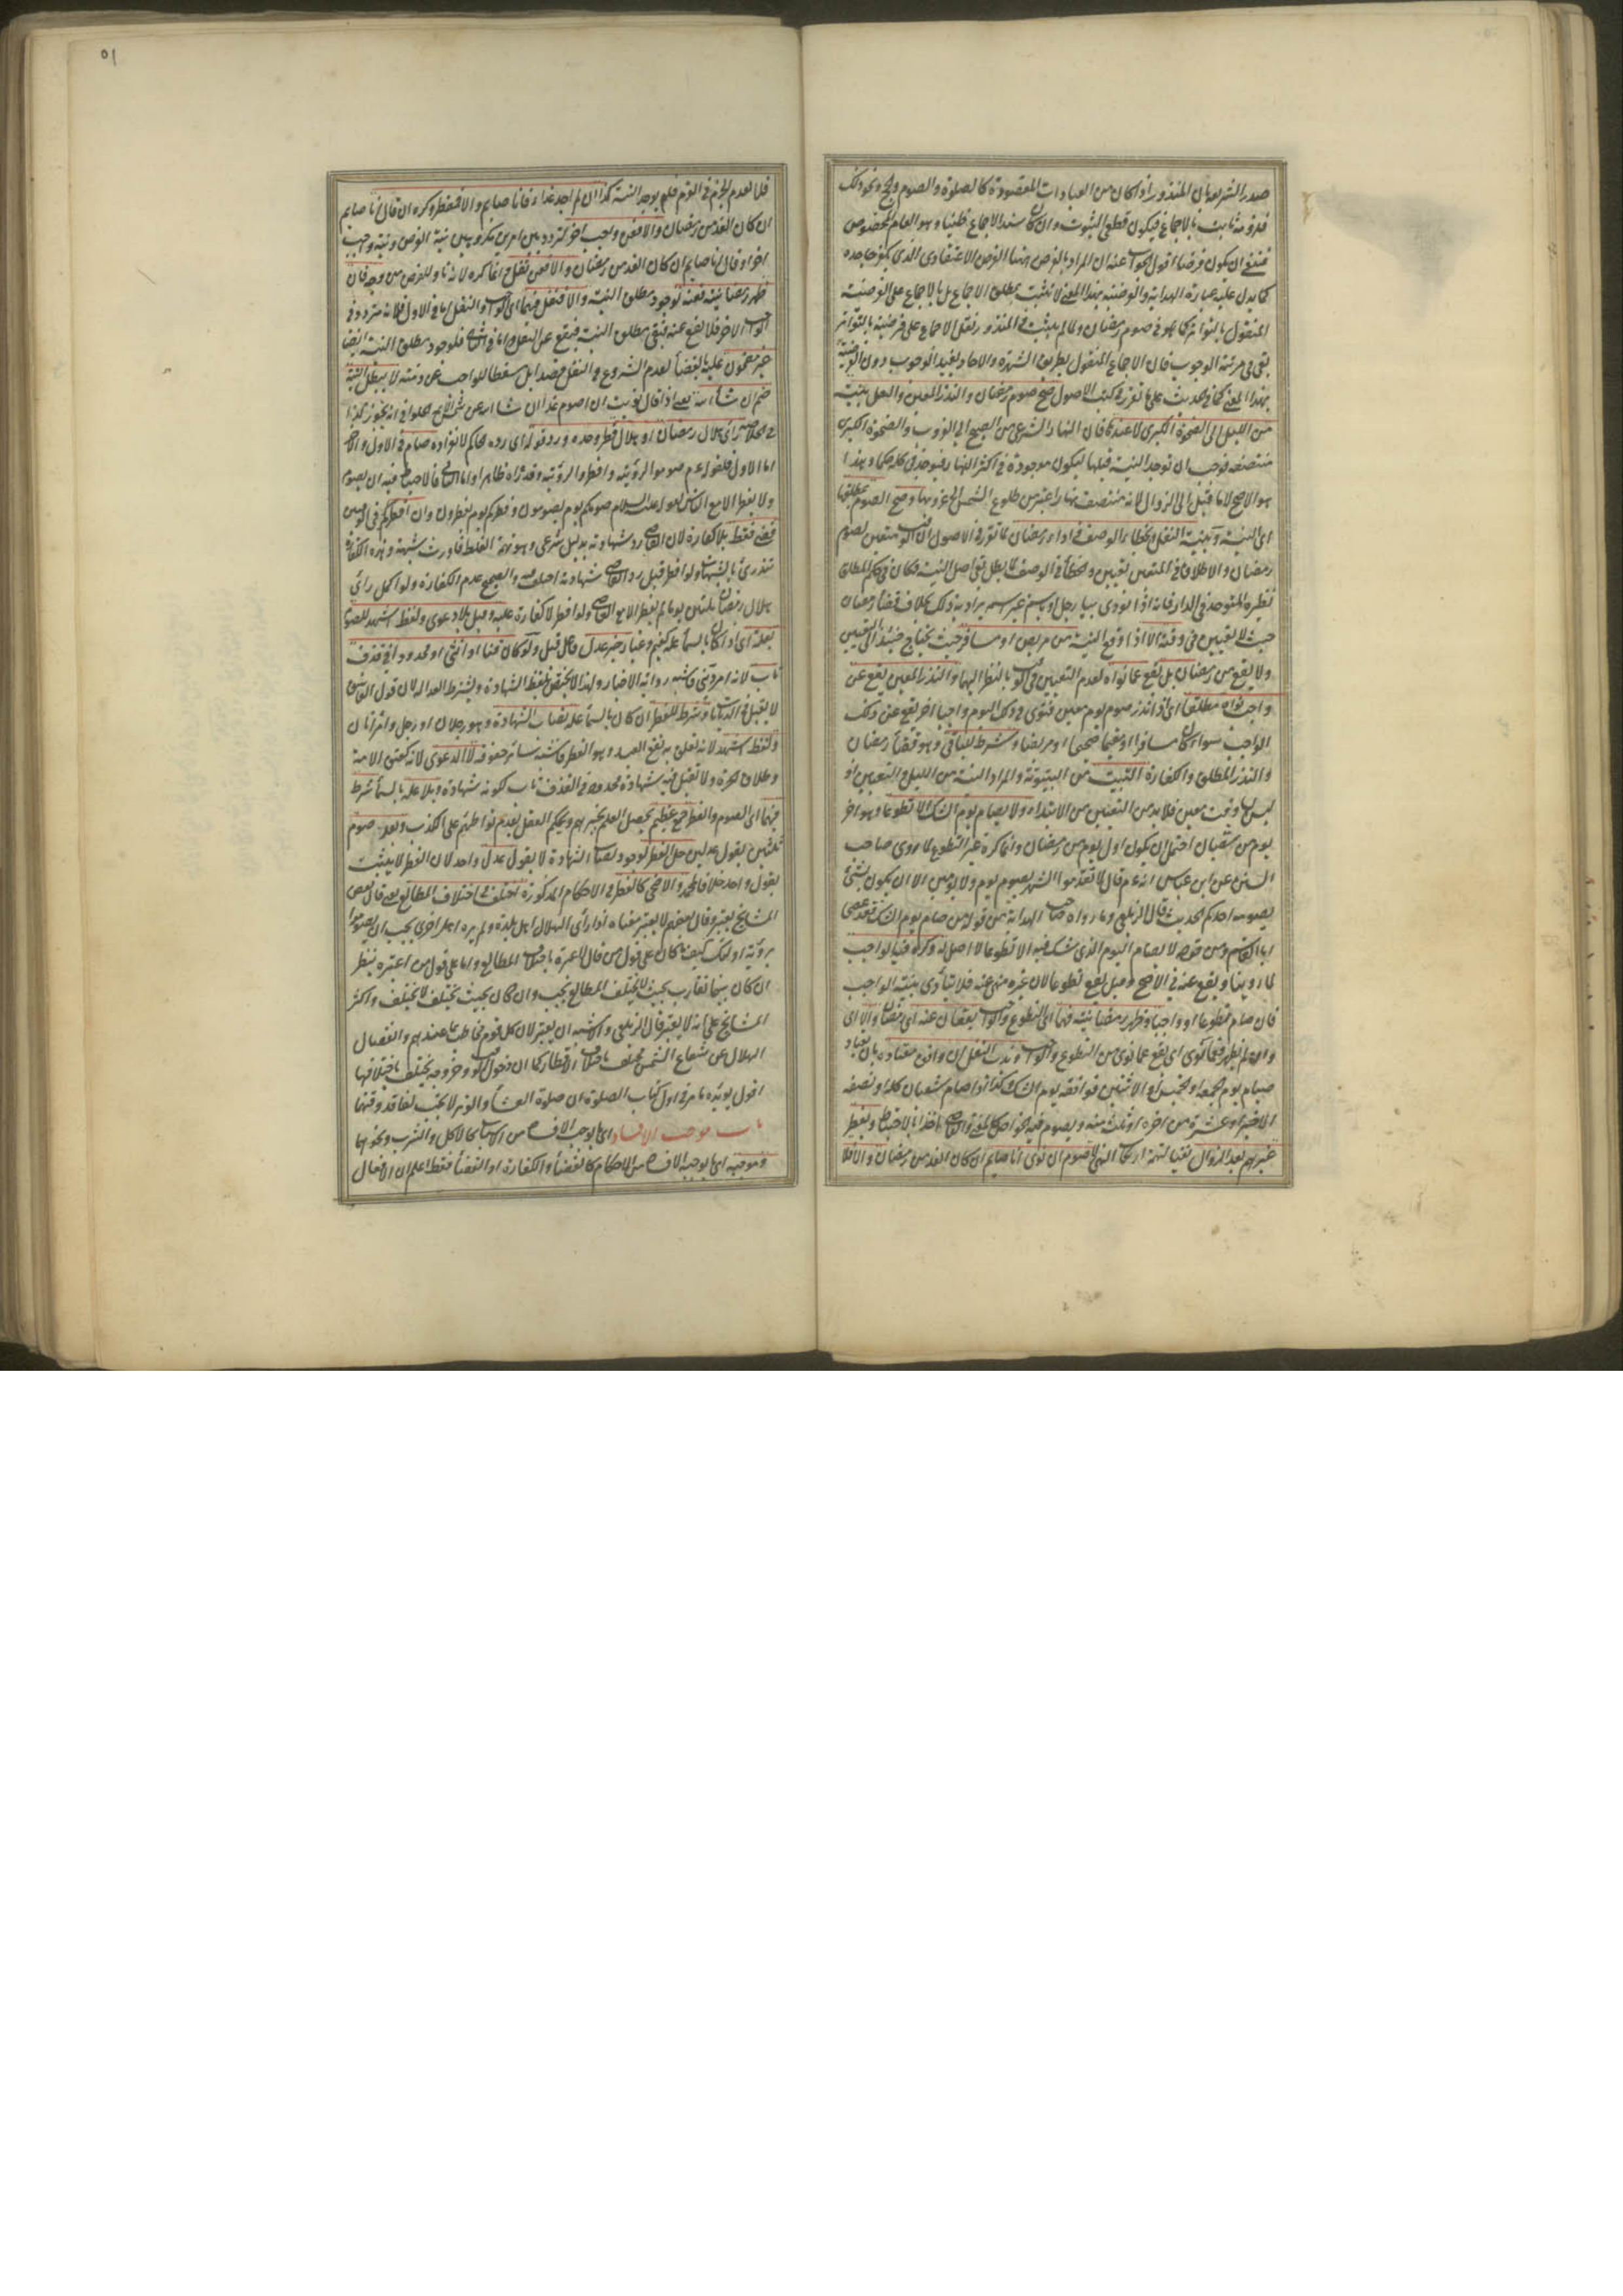 صدر الشريعة بان المنذور اذا كان من العبادات المقصودة كالصلوة والصوم والحج ونحو ذلك
فلزومه ثابت بالاجماع فيكون قطعي الثبوت وان كان سند الاجماع ظنيا وهو العام المخصوص
فينبغي ان يكون فرضا اقول الجواب عنه ان المراد بالفرض ههنا الفرض الاعتقادي الذي يكفر جاحده
كما يدل عليه عبارة الهداية والفرضية بهذا المعنى لا تثبت بمطلق الاجماع بل بالاجماع على الفرضية
المنقول بالتواتر كما هو في صوم رمضان ولما لم يثبت في المنذور نقل الاجماع على فرضيته بالتواتر
بقي في مرتبة الوجوب فان الاجماع المنقول بطريق الشهرة والآحاد يفيد الوجوب دون الفرضية
بهذا المعنى كما في الحديث على ما تقرر في كتب الاصول صح صوم رمضان والنذر المعين والنفل بنية
من الليل الى الضحوة الكبرى لا عندها فان النهار الشرعي من الصبح الى الغروب والضحوة الكبرى
منتصفه فوجب ان توجد النية قبلها ليكون موجودة في اكثر النهار فيوجد في كله حكما وهذا
هو الاصح لا ما قيل الى الزوال لانه منتصف نهار اعتبر من طلوع الشمس الى غروبها وصح الصوم بمطلقها
اى النية وبنية النفل وبخطاء الوصف في اداء رمضان لما تقرر في الاصول ان الوقت متعين لصوم
رمضان والاطلاق في المتعين تعيين والخطأ في الوصف لما بطل بقي اصل النية فكان في حكم المطلق
نظيره المتوحد في الدار فانه اذا نودي بيا رجل او باسم غير اسمه يراد به ذلك بخلاف قضاء رمضان
حيث لا تعيين في وقته الا اذا وقع النية من مريض او مسافر حيث يحتاج حينئذ الى التعيين
ولا يقع من رمضان بل يقع عما نواه لعدم التعيين في الوقت بالنظر اليهما والنذر المعين يقع عن
واجب نواه مطلقا اى اذا نذر صوم يوم معين فنوى في ذلك اليوم واجبا آخر يقع عن ذلك
الواجب سواء كان مسافرا او مقيما صحيحا او مريضا وشرط للباقي وهو قضاء رمضان
والنذر المطلق والكفارة التبييت من البيتوتة والمراد النية من الليل والتعيين اذ
ليس لها وقت معين فلا بد من التعيين من الابتداء ولا يصام يوم الشك الا تطوعا وهو آخر
يوم من شعبان احتمل ان يكون اول يوم من رمضان وانما كره غير التطوع لما روى صاحب
السنن عن ابن عباس انه عم قال لا تقدموا الشهر بصوم يوم ولا يومين الا ان يكون شئ
يصومه احدكم الحديث قال الزيلعي وما رواه صاحب الهداية من قوله من صام يوم الشك فقد عصى
ابا القاسم ومن قوله لا يصام اليوم الذي يشك فيه الا تطوعا لا اصل له وكره فيه الواجب
لما روينا ويقع عنه في الاصح وقيل يقع تطوعا لان غيره منهي عنه فلا يتأدى بنية الواجب
فان صام تطوعا او واجبا وظهر رمضانيته فهما اى التطوع والواجب يقعان عنه اى رمضان والا اى
وان لم يظهر فعما نوى اى يقع عما نوى من التطوع والواجب وندب النفل ان وافق معتاده بان يعتاد
صيام يوم الجمعة او الخميس او الاثنين فوافقه يوم الشك كذا اذا صام شعبان كله او نصفه
الاخير او عشرة من آخره او ثلثة منه ويصوم فيه الخواص كالمفتي والقاضي اخذا بالاحتياط ويفطر
غيرهم بعد الزوال نفيا لتهمة ارتكاب النهي لا صوم ان نوى انا صايم ان كان الغد من رمضان والا فلا
٥١
فلا لعدم الجزم في العزم فلم يوجد النية كذا ان لم اجد غداء فانا صايم والا فمفطر وكره ان قال انا صايم
ان كان الغد من رمضان والا فعن واجب آخر لتردده بين امرين مكروهين نية الفرض ونية واجب
آخر او قال انا صايم ان كان الغد من رمضان والا فعن نفل انما كره لانه ناو للفرض من وجه فان
ظهر رمضانيته فعنه لوجود مطلق النية والا فنفل فيهما اى الواجب والنفل اما في الاول فلانه متردد في
الواجب الآخر فلا يقع عنه فبقي مطلق النية فيقع عن النفل واما في الثاني فلوجود مطلق النية ايضا
غير مضمون عليه بالقضاء لعدم الشروع في النفل قصدا بل مسقطا للواجب عن ذمته لا يبطل النية
ضم ان شاء الله يعني اذا قال نويت ان اصوم غدا ان شاء الله عن شمس الائمة الحلواني انه يجوز كذا
في الخلاصة رأى هلال رمضان او هلال فطر وحده ورد قوله اى رده الحاكم لانفراده صام في الاول والآخر
اما الاول فلقوله عم صوموا لرؤيته وافطروا لرؤيته وقد رآه ظاهرا واما الثاني فالاحتياط فيه ان يصوم
ولا يفطر الا مع الناس لقوله عليه السلام صومكم يوم يصومون وفطركم يوم تفطرون وان افطر في الوقتين
قضى فقط بلا كفارة لان القاضي رد شهادته بدليل شرعي وهو تهمة الغلط فاورث شبهة وهذه الكفارة
تندرئ بالشبهات ولو افطر قبل رد القاضي شهادته اختلف فيه والصحيح عدم الكفارة ولو اكمل رائى
هلال رمضان ثلثين يوما لم يفطر الا مع القاضي ولو افطر لا كفارة عليه وقبل بلا دعوى ولفظ اشهد للصوم
بعلة اى اذا كان بالسماء علة كغيم وغبار خبر عدل فاعل قبل ولو كان قنا او انثى او محدودا في قذف
تاب لانه امر ديني فاشبه رواية الاخبار ولهذا لا يختص بلفظ الشهادة ويشترط العدالة لان قول الفاسق
لا يقبل في الديانات وشرط للفطر ان كان بالسماء علة نصاب الشهادة وهو رجلان او رجل وامرأتان
ولفظ اشهد لانه تعلق به نفع العبد وهو الفطر فاشبه سائر حقوقه لا الدعوى لانه كعتق الامة
وطلاق الحرة ولا تقبل فيه شهادة محدود في القذف تاب لكونه شهادة وبلا علة بالسماء شرط
فيهما اى الصوم والفطر جمع عظيم يحصل العلم بخبرهم ويحكم العقل بعدم تواطئهم على الكذب وبعد صوم
ثلثين بقول عدلين حل الفطر لوجود نصاب الشهادة لا بقول عدل واحد لان الفطر لا يثبت
بقول واحد خلافا لمحمد والاضحى كالفطر في الاحكام المذكورة اختلف في اختلاف المطالع يعني قال بعض
المشايخ يعتبر وقال بعضهم لا يعتبر معناه اذا رأى الهلال اهل بلدة ولم يره اهل اخرى يجب ان يصوموا
برؤية اولئك كيف ما كان على قول من قال لا عبرة باختلاف المطالع واما على قول من اعتبره ينظر
ان كان بينهما تقارب بحيث لا يختلف المطالع يجب وان كان بحيث يختلف لا يختلف واكثر
المشايخ على انه لا يعتبر قال الزيلعي والاشبه ان يعتبر لان كل قوم مخاطب بما عندهم وانفصال
الهلال عن شعاع الشمس يختلف باختلاف الاقطار كما ان دخول الوقت وخروجه يختلف باختلافها
اقول يؤيده ما مر في اول كتاب الصلوة ان صلوة العشاء والوتر لا تجب لفاقد وقتهما
باب موجب الافساد اى ما يوجب الافساد من الاسباب كالاكل والشرب ونحوهما
وموجبه اى ما يوجبه الافساد من الاحكام كالقضاء والكفارة او القضاء فقط اعلم ان الافعال